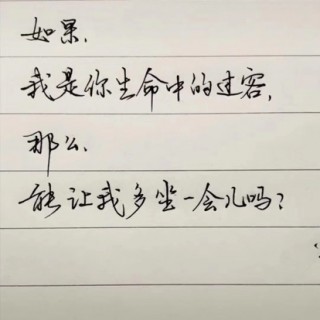 如果,
我是你生命中的过客,
那么,
能让我多坐一会儿吗?